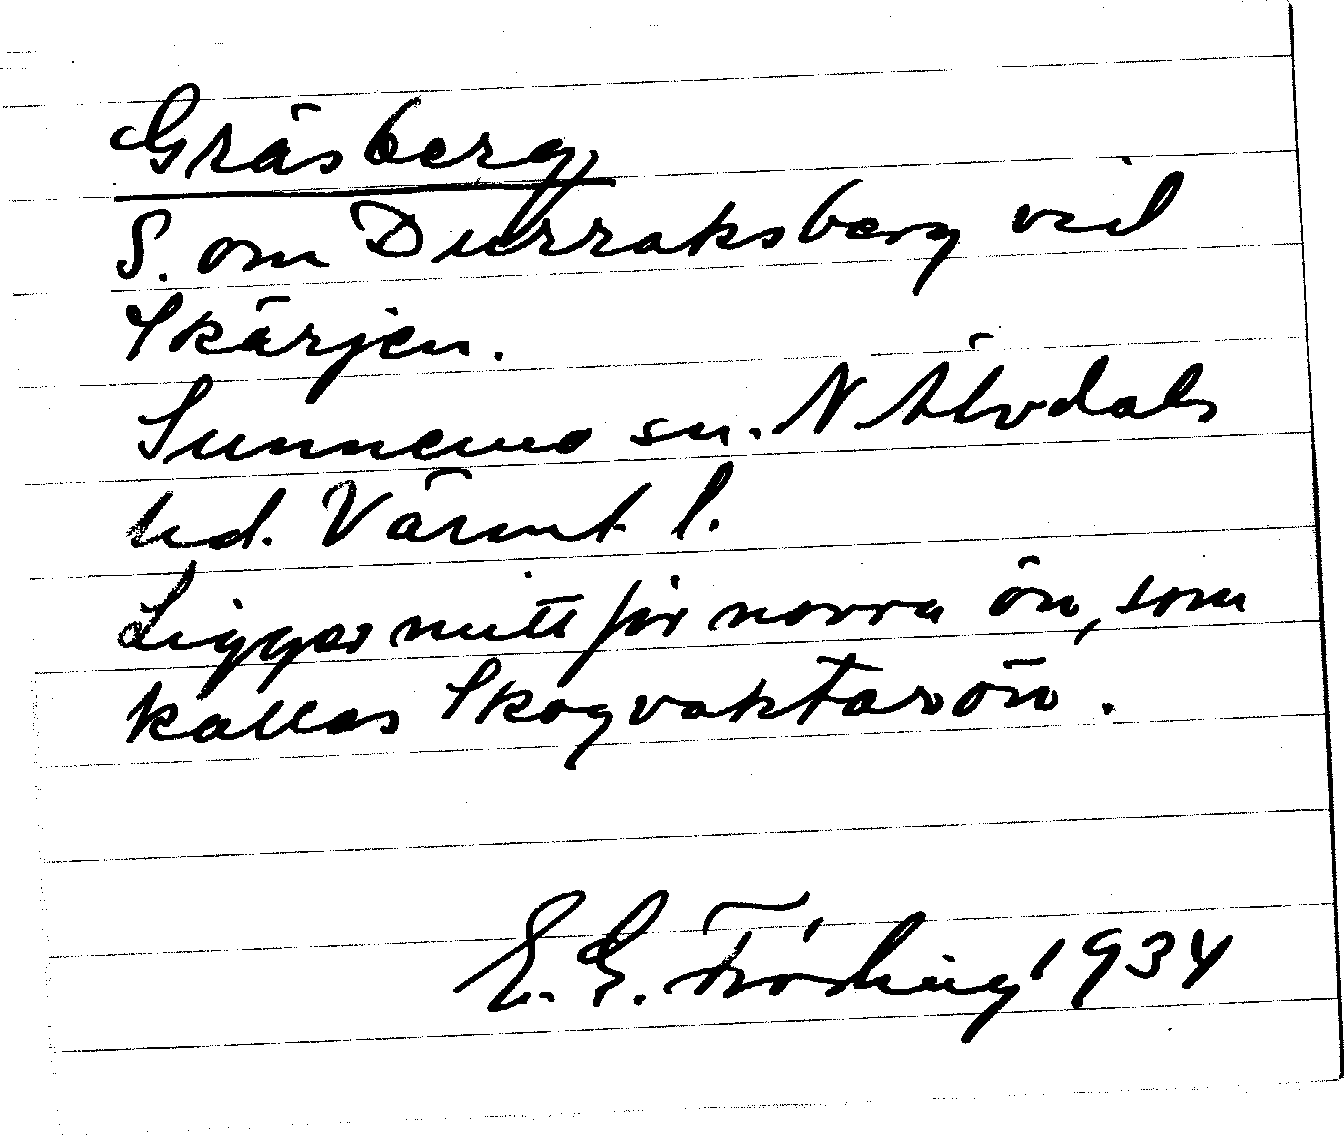 Gräsberg
S. om Durraksberg vid
Skärjen.
Sunnemo sn. N Älvdals
hd. Värml l.
Ligger mitt för norra ön, som
kallas Skogvaktarön.
1934